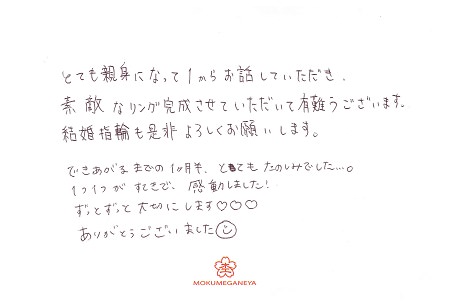 とても親身になって1からお話していただき、
素敵なリング完成させていただいて有難うございます。
結婚指輪も是非よろしくお願いします。
できあがるまでの1ヶ月半、とてもたのしみでした…。
1つ1つがすてきで、感動しました!
ずっとずっと大切にします♡♡♡
ありがとうございました☺
杢
MOKUMEGANEYA